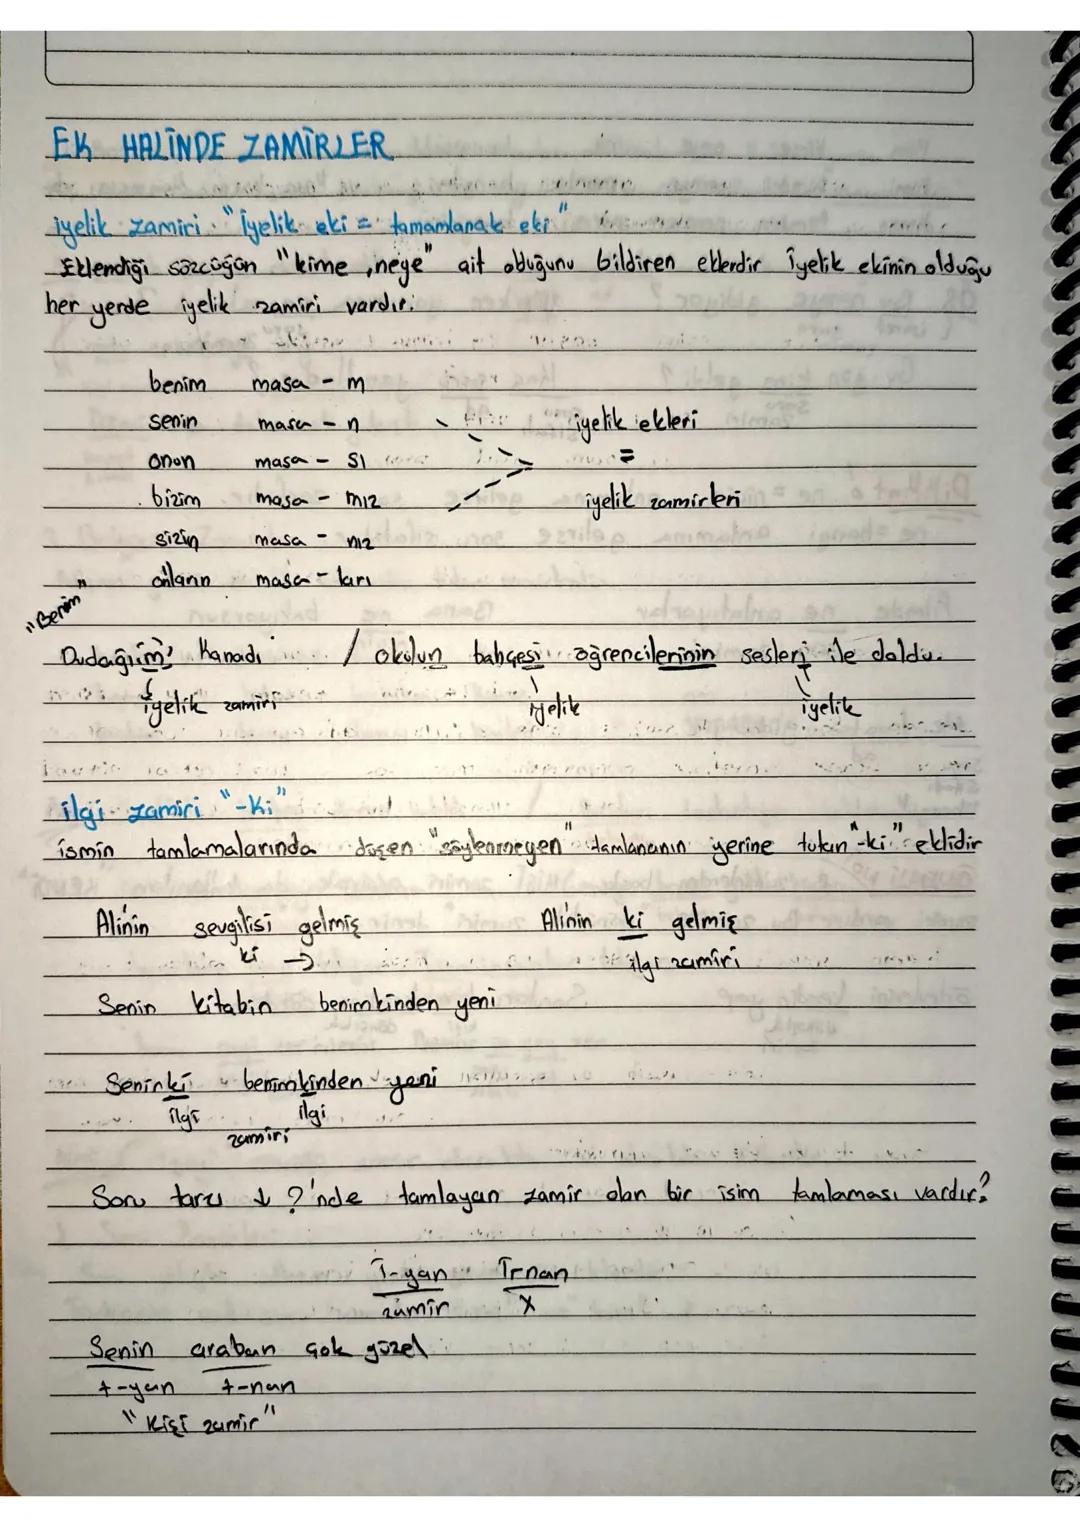 EK HALİNDE ZAMİRLER
iyelik zamiri "İyelik eki = tamamlanak eki"
Eklendiği sözcüğün "kime, neye" ait olduğunu bildiren eklerdir İyelik ekinin olduğu
her yerde iyelik zamiri vardır.
benim masa - m
senin masa - n iyelik ekleri
onon masa - sı =
bizim masa - mız iyelik zamirleri
sizin masa - nız
onların masa - ları
"Benim"
Dudağım Kanadı / okulun bahçesi öğrencilerinin sesleri ile doldu.
iyelik zamiri iyelik iyelik
ilgi zamiri "-Ki"
ismin tamlamalarında düşen "söylenmeyen" tamlananın yerine tutan "-ki" eklidir
Ali'nin sevgilisi gelmiş Ali'nin ki gelmiş
ki → ilgi zamiri
Senin kitabın benimkinden yeni
Seninki benimkinden yeni
ilgi ilgi
zamiri
Soru tarzı ↓ ?'nde tamlayan zamir olan bir isim tamlaması vardır?
T-yan T-nan
zamir X
Senin araban çok güzel
t-yan t-nan
"Kişi zamir"